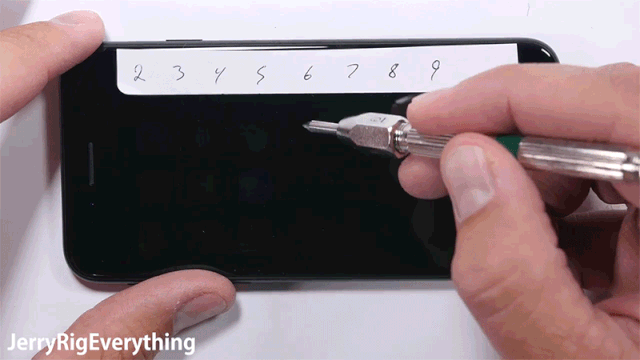 2 3 4 5 6 7 8 9
JerryRigEverything